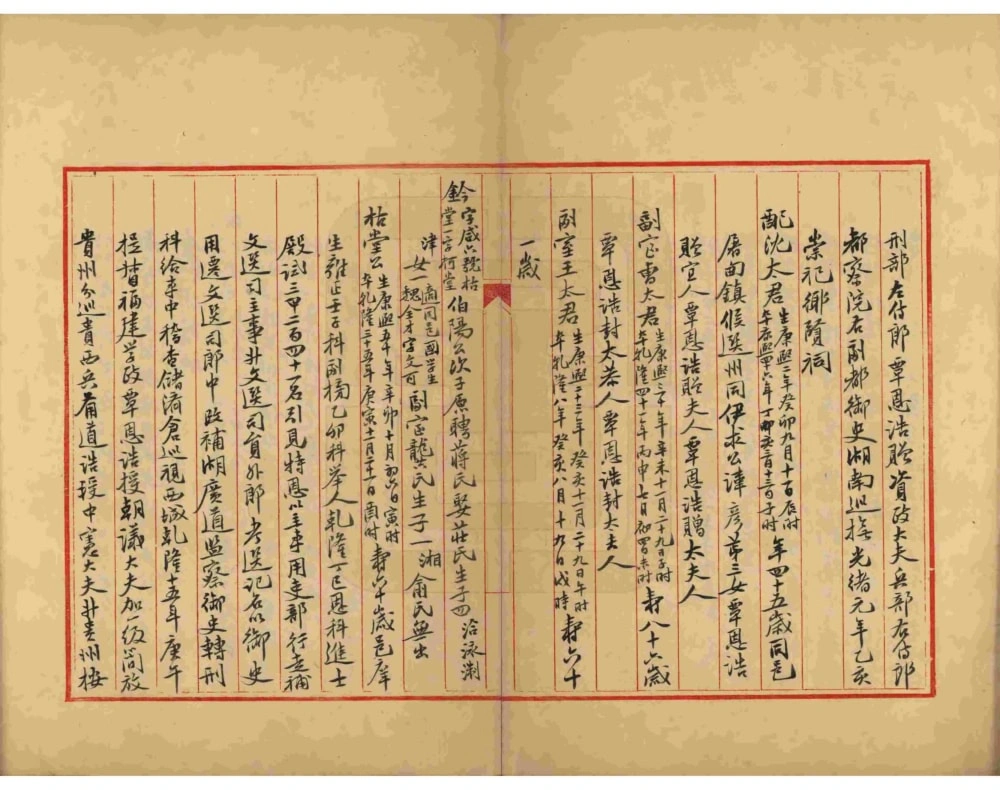 刑部左侍郎覃恩誥贈資政大夫兵部右侍郎
都察院右副都御史湖南巡撫光緒元年乙亥
崇祀鄉賢祠
配沈太君生康熙二年癸卯九月十日辰時卒康熙四十六年丁亥月十三日子時年四十五歲同邑
屠甸鎮候選州同伊求公諱彦第三女覃恩誥
贈宜人覃恩誥贈夫人覃恩誥贈太夫人
副室曹太君生康熙三十年辛未十一月二十九日子時卒乾隆四十一年丙申七月初四日未時壽八十六歲
覃恩誥封太恭人覃恩誥封太夫人
副室王太君生康熙二十三年癸亥十一月二十九日午時卒乾隆八年癸亥八月十九日戌時壽六十
一歲
鈐字咸六號枯堂一字柯堂伯陽公次子原聘蔣氏娶莊氏生子四洽泳澍
津女一適同邑國學生魏全才字文可副室龔氏生子一湘俞氏無出
枯堂公生康熙五十年辛卯十月初六日寅時卒乾隆三十五年庚寅十一月二十一日酉時壽六十歲邑庠
生雍正壬子科副榜乙卯科舉人乾隆丁巳恩科進士
殿試三甲二百四十一名引見特恩以主事用吏部行走補
文選司主事升文選司員外郎考選記名以御史
用遷文選司郎中改補湖廣道監察御史轉刑
科給事中稽查儲濟倉巡視西城乾隆十五年庚午
提督福建學政覃恩誥授朝議大夫加一級簡放
貴州分巡貴西兵備道誥授中憲大夫升貴州按